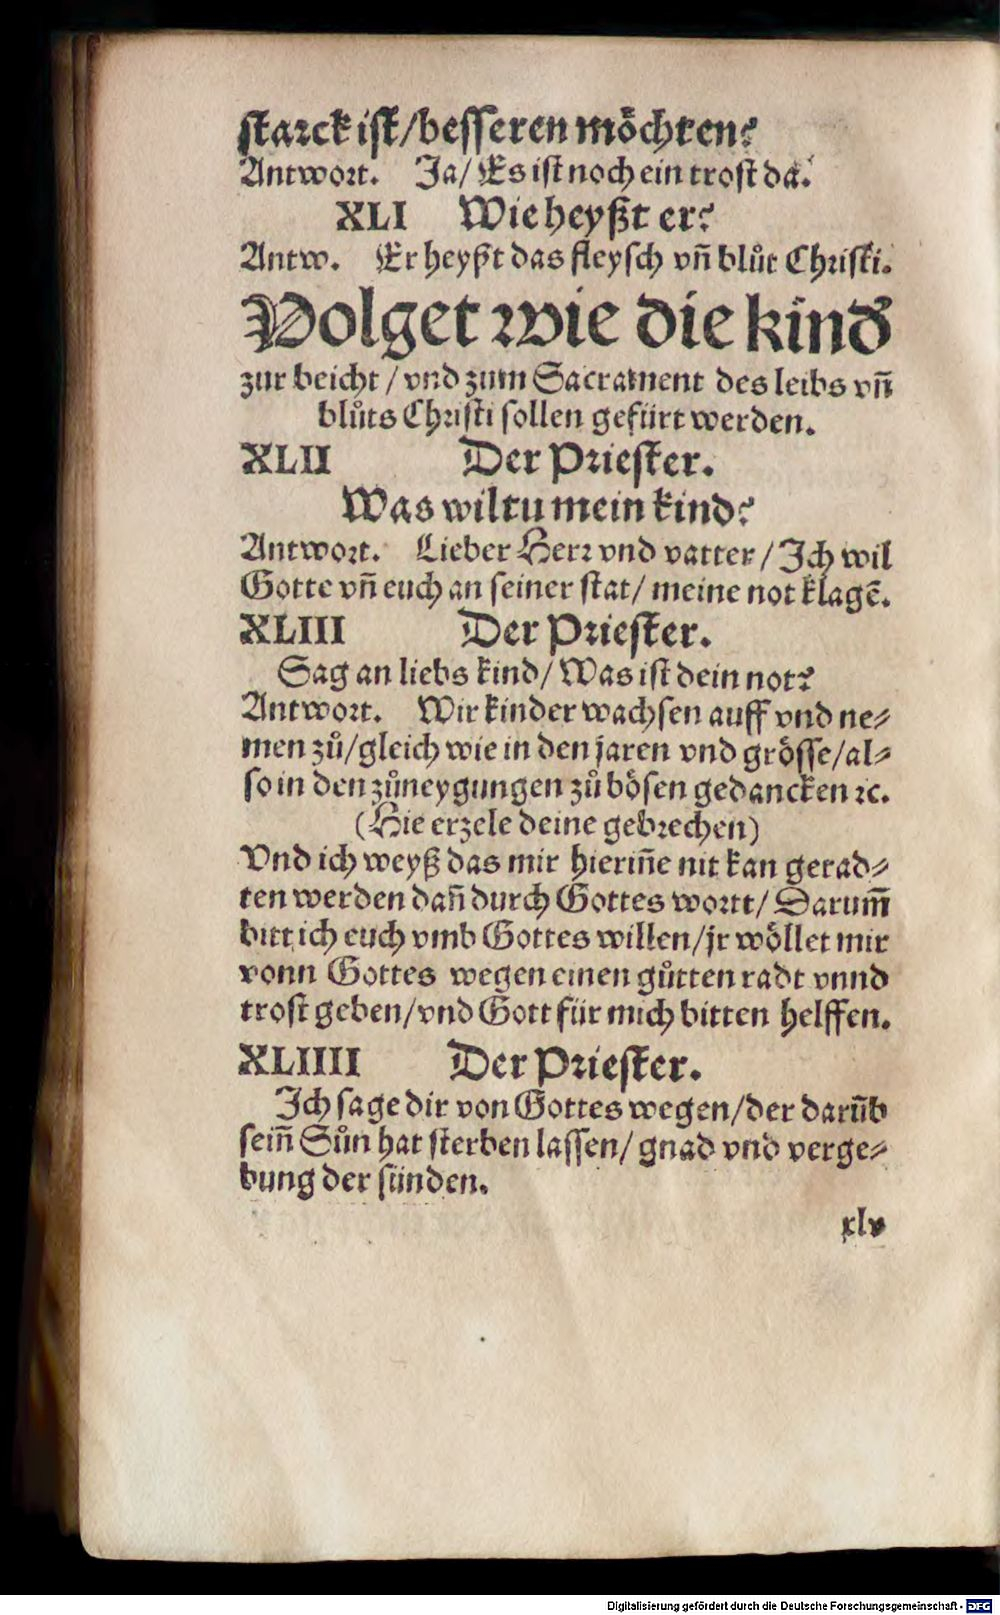 starck ist/besseren möchten?
Antwort. Ja/ Es ist noch ein trost da.
XLI Wie heyßt er?
Antw. Er heyßt das fleysch vñ blůt Christi.
Volget wie die kind
zur beicht / vnd zum Sacrament des leibs vñ
blůts Christi sollen gefürt werden.
XLII Der Priester.
Was wiltu mein kind?
Antwort. Lieber Herr vnd vatter / Ich wil
Gotte vñ euch an seiner stat/ meine not klagẽ.
XLIII Der Priester.
Sag an liebs kind/ Was ist dein not?
Antwort. Wir kinder wachsen auff vnd ne⸗
men zů/gleich wie in den jaren vnd grösse/al⸗
so in den zůneygungen zů bösen gedancken ꝛc.
(Hie erzele deine gebrechen)
Vnd ich weyß das mir hierin̄e nit kan gerad⸗
ten werden dan̄ durch Gottes wortt/ Darum̄
bitt ich euch vmb Gottes willen/jr wöllet mir
vonn Gottes wegen einen gůtten radt vnnd
trost geben/vnd Gott für mich bitten helffen.
XLIIII Der Priester.
Ich sage dir von Gottes wegen/der darūb
sein̄ Sůn hat sterben lassen/ gnad vnd verge⸗
bung der sünden.
xlv
Digitalisierung gefördert durch die Deutsche Forschungsgemeinschaft - DFG